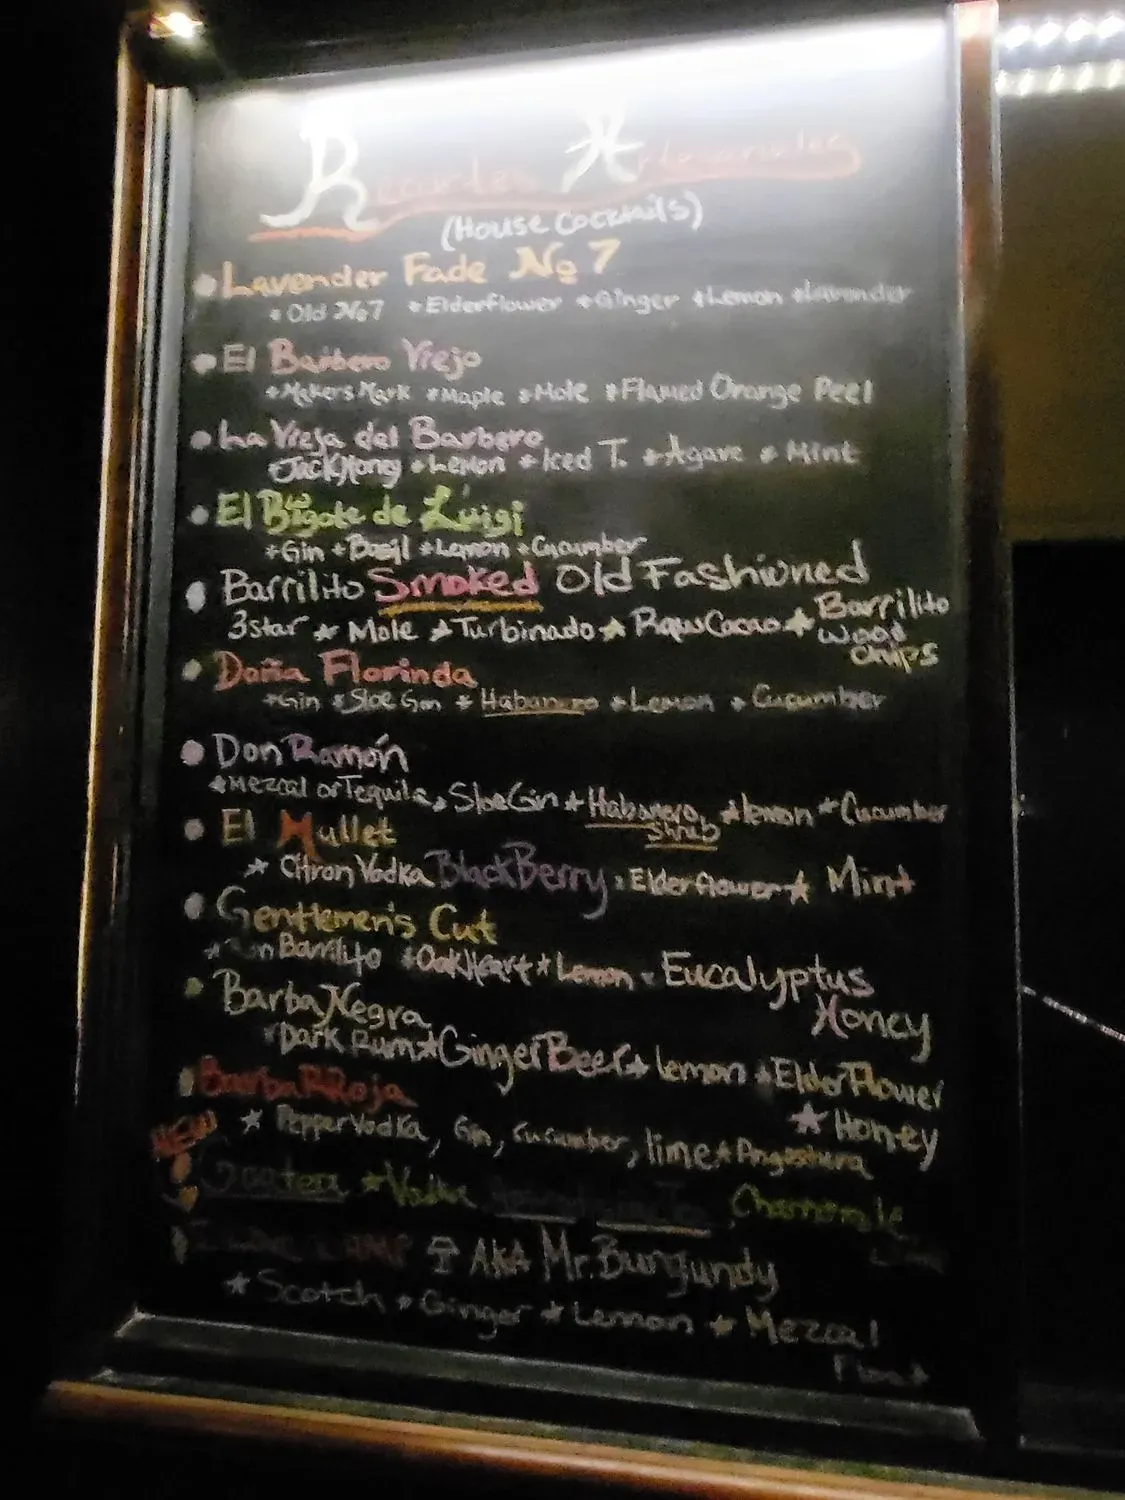 (House Cocktails)
Lavender Fade No 7
Old No7 *Elderflower *Ginger *Lemon *Lavender
El Barbero Viejo
*Makers Mark *Maple *Mole *Flamed Orange Peel
La Vieja del Barbero
Jack Honey *Lemon *Iced T. *Agave *Mint
El Bigote de Luigi
*Gin *Basil *Lemon *Cucumber
Barrilito Smoked Old Fashioned
3star * Mole *Turbinado * Raw Cacao * Barrilito
Wood
Chips
Doña Florinda
*Gin *Sloe Gin * Habanero *Lemon * Cucumber
Don Ramón
*Mezcal or Tequila * Sloe Gin * Habanero *lemon * Cucumber
Shrub
El Mullet
* Citron Vodka BlackBerry * Elderflower * Mint
Gentlemen's Cut
Barrilito *OakHeart * Lemon * Eucalyptus
Honey
Barba Negra
*Dark Rum *Ginger Beer * lemon *ElderFlower
* Honey
Barba RRoja
NEW
* Pepper Vodka, Gin, cucumber, lime * Angostura
*Vodka Chamomile
AKA Mr. Burgundy
* Scotch * Ginger * Lemon * Mezcal
Float